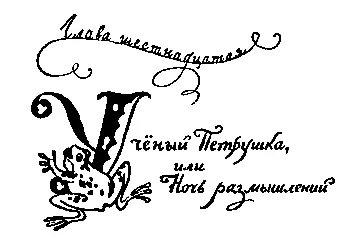 Глава шестнадцатая
Учёный Петрушка,
или
Ночь размышлений